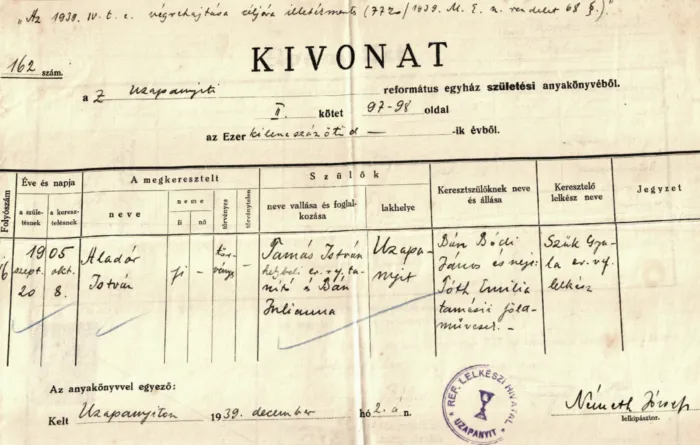 „Az 1939. IV. t. c. végrehajtása céljára illetékmentes (7720/1939. M. E. n. rendelet 68 §.)."
162 szám.
KIVONAT
a z Uzapanyiti református egyház születési anyakönyvéből.
II. kötet 97-98 oldal
az Ezer kilencszázötöd — -ik évből.
Folyószám
Éve és napja
A megkeresztelt
Szülők
Keresztszülőknek neve és állása
Keresztelő lelkész neve
Jegyzet
a születésnek
a keresztelésnek
neve
neme
fi
nő
törvényes
törvénytelen
neve vallása és foglalkozása
lakhelye
1905
szept. okt.
20 8.
Aladár
István
fi
-
tör-
vényes
-
Tamás István
helybeli ev. ref. ta-
nító s Bán
Julianna
Uzapa-
nyit
Bán Bódi
János és neje:
Tóth Emilia
tamásii föld-
műveser. -
Szűk Gyu-
la ev. ref.
lelkész
Az anyakönyvvel egyező:
Kelt Uzapanyiten 1939. december hó 2.-á n.
REF. LELKÉSZI HIVATAL
UZAPANYIT
Németh József
lelkipásztor.